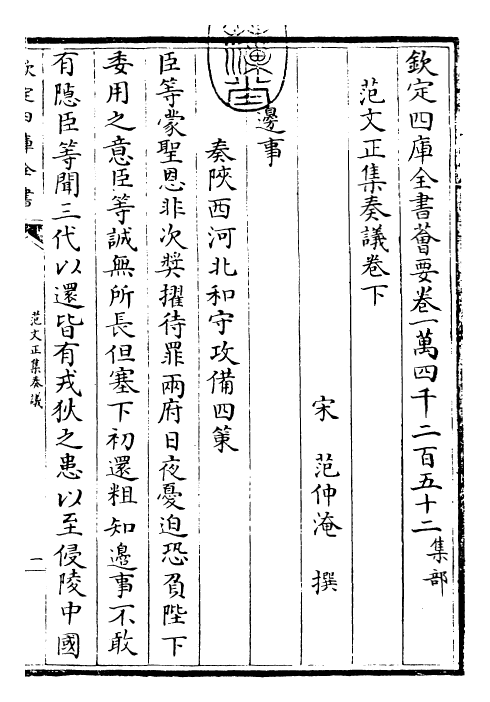 欽定四庫全書薈要卷一萬四千二百五十二集部
范文正集奏議卷下
宋范仲淹撰
邊事
奏陜西河北和守攻備四策
臣等蒙聖恩非次奬擢待罪兩府日夜憂迫恐負陛下
委用之意臣等誠無所長但塞下初還粗知邊事不敢
有隠臣等聞三代以還皆有戎狄之患以至侵陵中國
欽定四庫全書
范文正集奏議
一